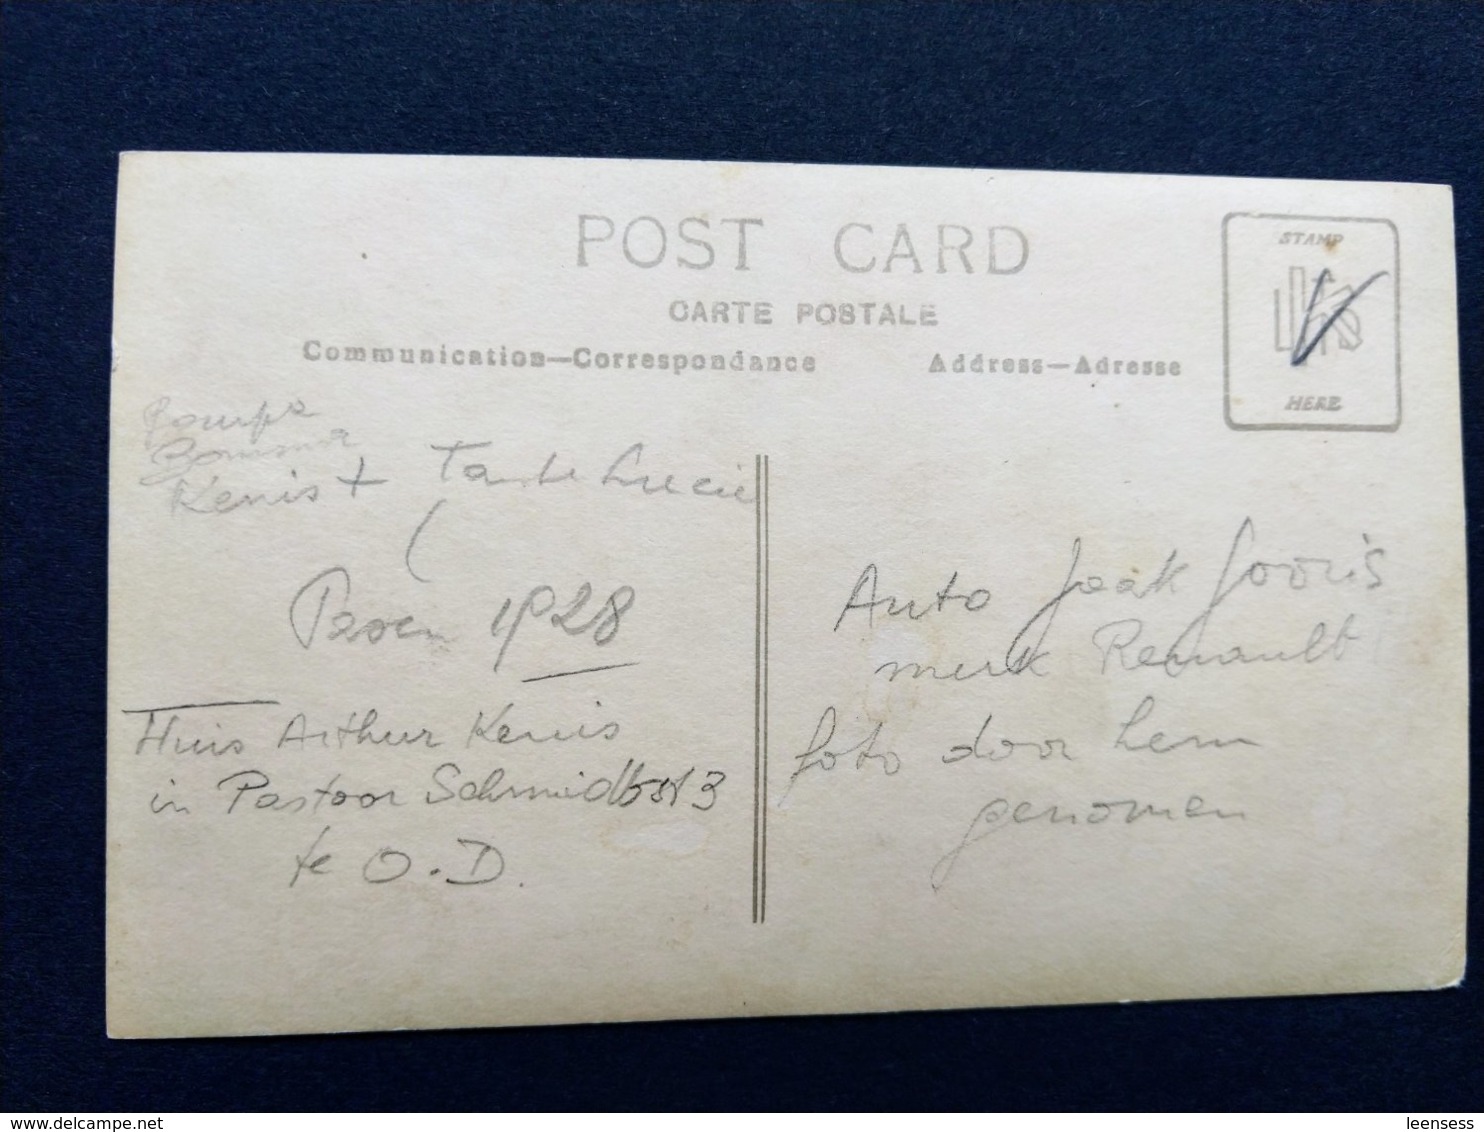 POST CARD
CARTE POSTALE
Communication—Correspondance
Address—Adresse
STAMP
HERE
Bompa
Bomma
Kenis + Tante Lucie
Pasen 1928
Huis Arthur Kenis
in Pastoor Schmidtstr 3
te O.D.
Auto Jaak Jooris
merk Renault
foto door hem
genomen
delcampe.net
leensess